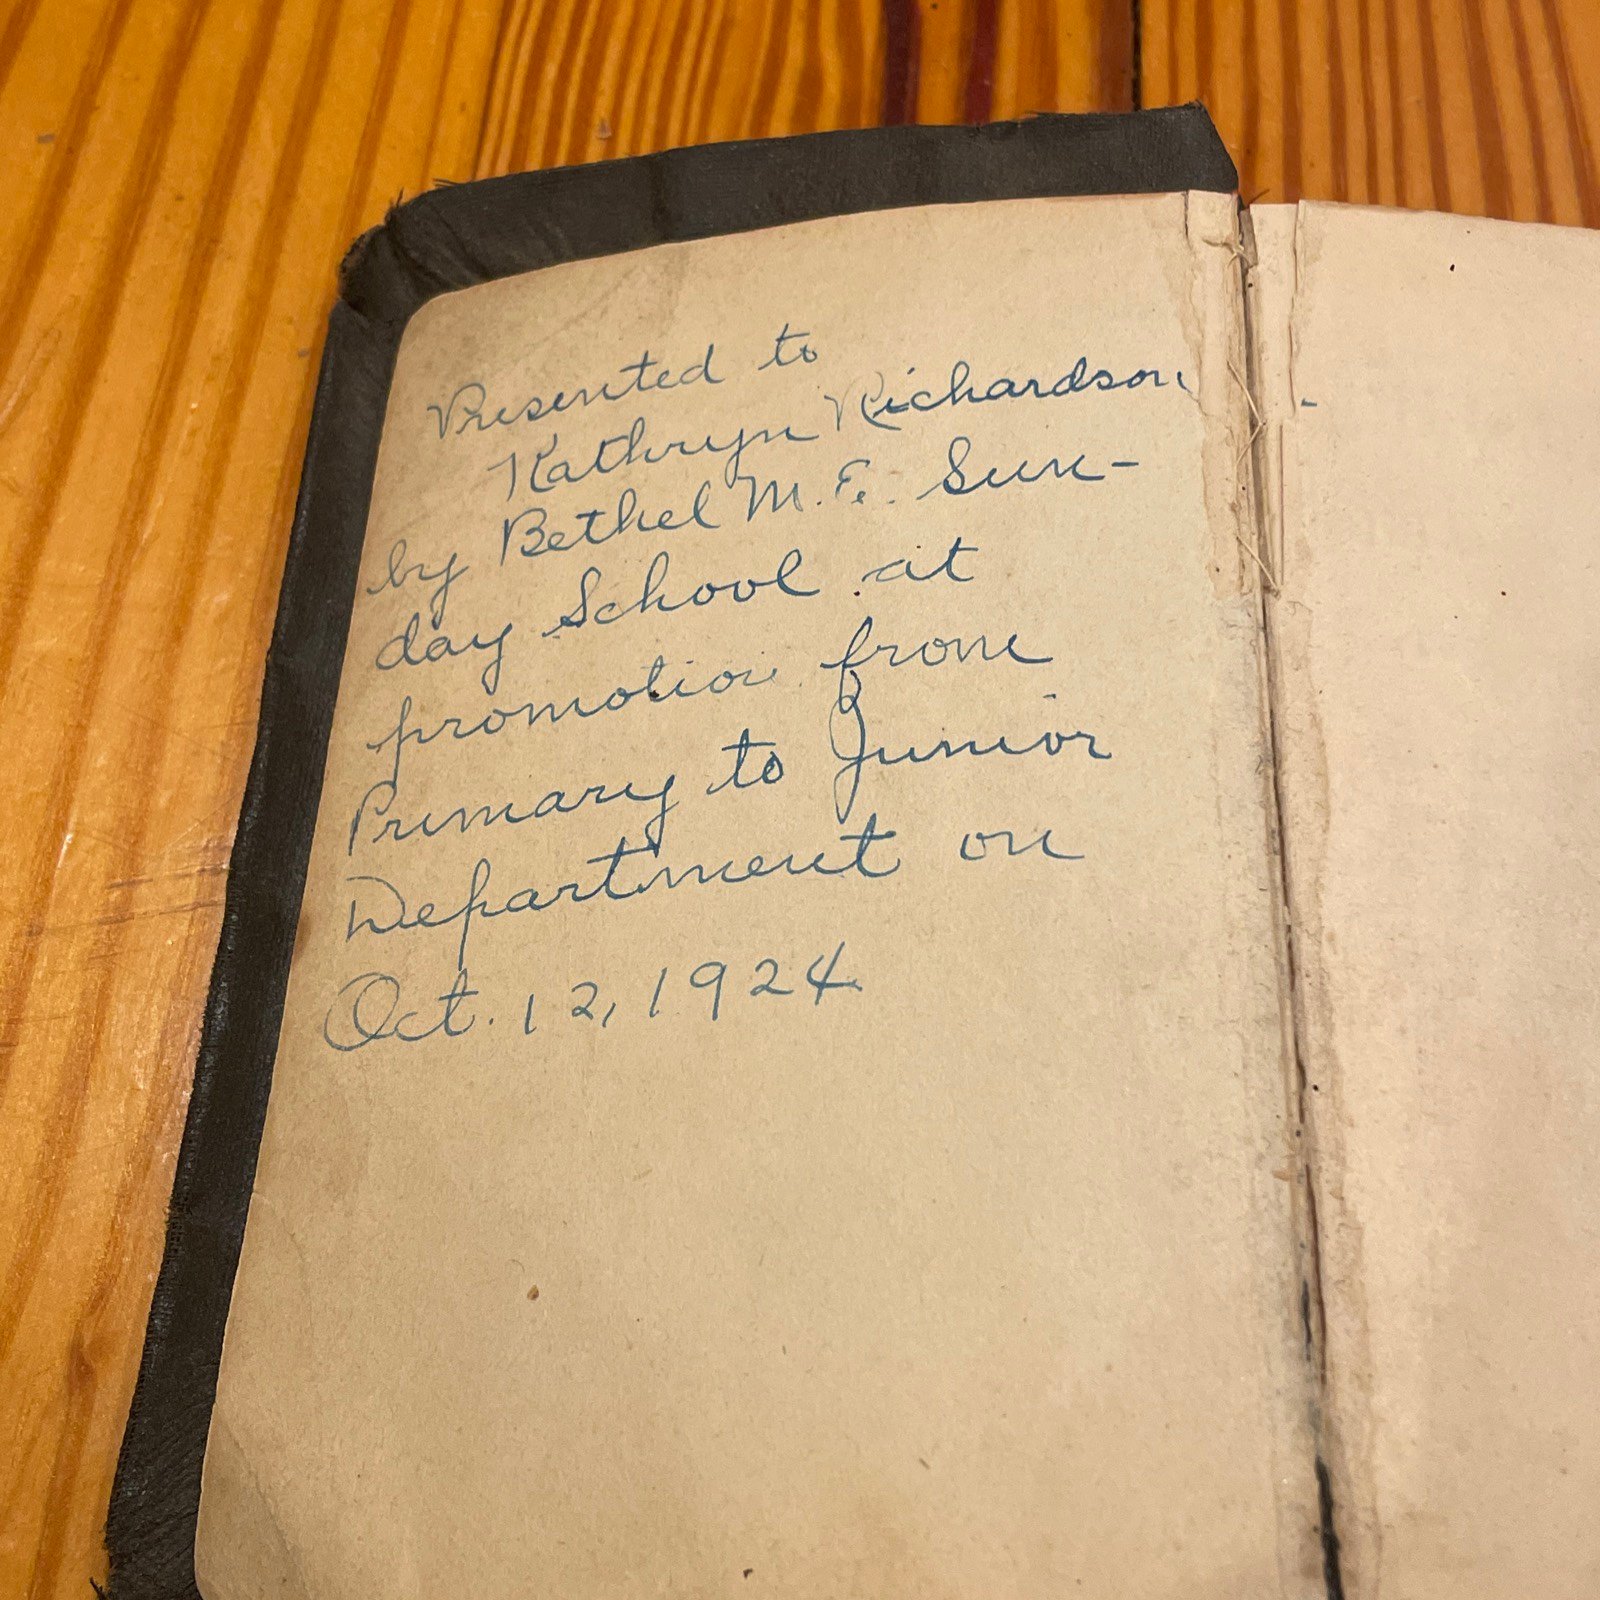 Presented to
Kathryn Richardson
by Bethel M. E. Sun-
day School at
promotion from
Primary to Junior
Department on
Oct. 12, 1924